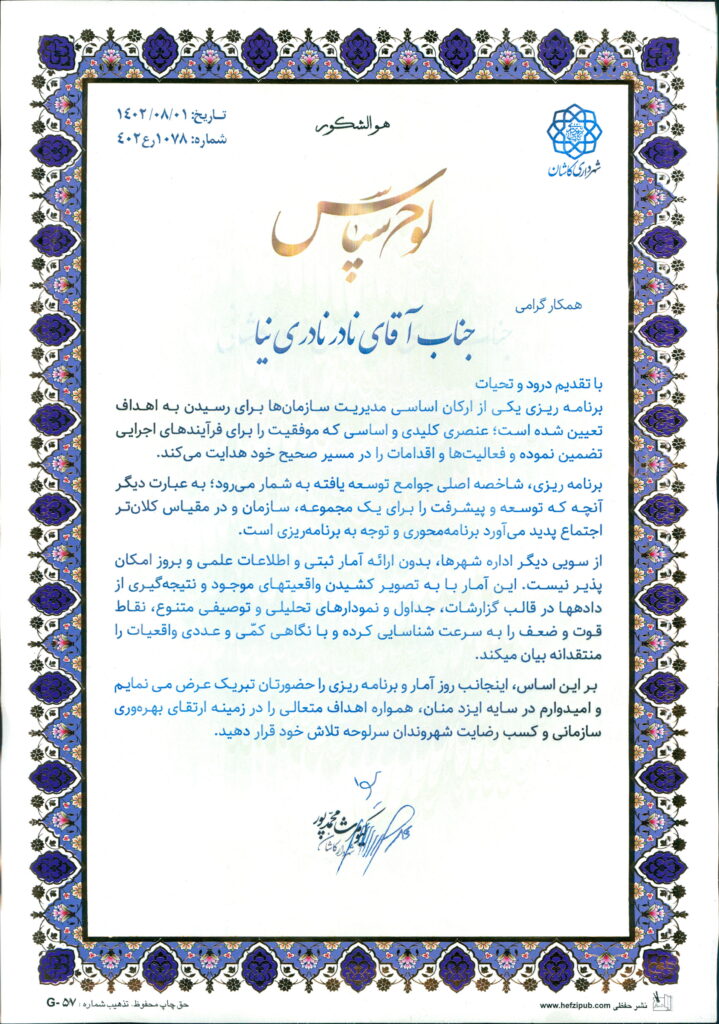 تاریخ: ۱۴۰۲/۰۸/۰۱
شماره: ۴۰۲رع۱۰۷۸
هوالشکور
شهرداری کاشان
لوح سپاس
همکار گرامی
جناب آقای نادر نادری نیا
با تقدیم درود و تحیات
برنامه ریزی یکی از ارکان اساسی مدیریت سازمان‌ها برای رسیدن به اهداف
تعیین شده است؛ عنصری کلیدی و اساسی که موفقیت را برای فرآیندهای اجرایی
تضمین نموده و فعالیت‌ها و اقدامات را در مسیر صحیح خود هدایت می‌کند.
برنامه ریزی، شاخصه اصلی جوامع توسعه یافته به شمار می‌رود؛ به عبارت دیگر
آنچه که توسعه و پیشرفت را برای یک مجموعه، سازمان و در مقیاس کلان‌تر
اجتماع پدید می‌آورد برنامه‌محوری و توجه به برنامه‌ریزی است.
از سویی دیگر اداره شهرها، بدون ارائه آمار ثبتی و اطلاعات علمی و بروز امکان
پذیر نیست. این آمار با به تصویر کشیدن واقعیتهای موجود و نتیجه‌گیری از
دادهها در قالب گزارشات، جداول و نمودارهای تحلیلی و توصیفی متنوع، نقاط
قوت و ضعف را به سرعت شناسایی کرده و با نگاهی کمّی و عددی واقعیات را
منتقدانه بیان میکند.
بر این اساس، اینجانب روز آمار و برنامه ریزی را حضورتان تبریک عرض می نمایم
و امیدوارم در سایه ایزد منان، همواره اهداف متعالی را در زمینه ارتقای بهره‌وری
سازمانی و کسب رضایت شهروندان سرلوحه تلاش خود قرار دهید.
کیومرث محمدپور
شهردار کاشان
نشر حفظی www.hefzipub.com
حق چاپ محفوظ. تذهیب شماره : G-۵۷